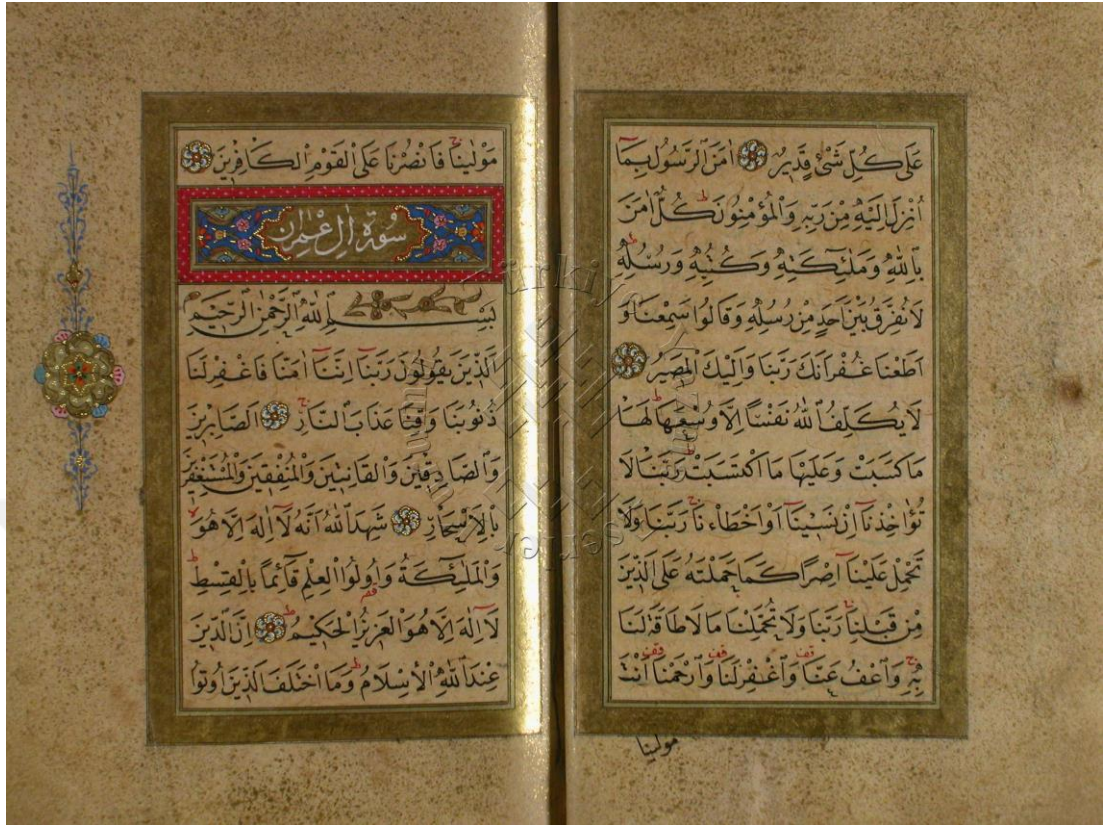 عَلٰى كُلِّ شَىْءٍ قَدٖيرٌ اٰمَنَ الرَّسُولُ بِمَٓا
اُنْزِلَ اِلَيْهِ مِنْ رَبِّهٖ وَالْمُؤْمِنُونَ كُلٌّ اٰمَنَ
بِاللّٰهِ وَمَلٰٓئِكَتِهٖ وَكُتُبِهٖ وَرُسُلِهٖ
لَا نُفَرِّقُ بَيْنَ اَحَدٍ مِنْ رُسُلِهٖ وَقَالُوا سَمِعْنَا وَ
اَطَعْنَا غُفْرَانَكَ رَبَّنَا وَاِلَيْكَ الْمَصٖيرُ
لَا يُكَلِّفُ اللّٰهُ نَفْسًا اِلَّا وُسْعَهَا لَهَا
مَا كَسَبَتْ وَعَلَيْهَا مَا اكْتَسَبَتْ رَبَّنَا لَا
تُؤَاخِذْنَٓا اِنْ نَسٖينَٓا اَوْ اَخْطَاْءنَا رَبَّنَا وَلَا
تَحْمِلْ عَلَيْنَٓا اِصْرًا كَمَا حَمَلْتَهُ عَلَى الَّذٖينَ
مِنْ قَبْلِنَا رَبَّنَا وَلَا تُحَمِّلْنَا مَا لَا طَاقَةَ لَنَا
بِهٖ وَاعْفُ عَنَّا وَاغْفِرْ لَنَا وَارْحَمْنَا اَنْتَ
مولينا
مَوْلٰينَا فَانْصُرْنَا عَلَى الْقَوْمِ الْكَافِرٖينَ
سُورَةُ اٰلِ عِمْرٰن
بِسْمِ اللّٰهِ الرَّحْمٰنِ الرَّحٖيمِ
اَلَّذٖينَ يَقُولُونَ رَبَّنَٓا اِنَّنَٓا اٰمَنَّا فَاغْفِرْ لَنَا
ذُنُوبَنَا وَقِنَا عَذَابَ النَّارِ اَلصَّابِرٖينَ
وَالصَّادِقٖينَ وَالْقَانِتٖينَ وَالْمُنْفِقٖينَ وَالْمُسْتَغْفِرٖينَ
بِالْاَسْحَارِ شَهِدَ اللّٰهُ اَنَّهُ لَٓا اِلٰهَ اِلَّا هُوَ
وَالْمَلٰٓئِكَةُ وَاُولُوا الْعِلْمِ قَٓائِمًا بِالْقِسْطِ
لَٓا اِلٰهَ اِلَّا هُوَ الْعَزٖيزُ الْحَكٖيمُ اِنَّ الدّٖينَ
عِنْدَ اللّٰهِ الْاِسْلَامُ وَمَا اخْتَلَفَ الَّذٖينَ اُوتُوا